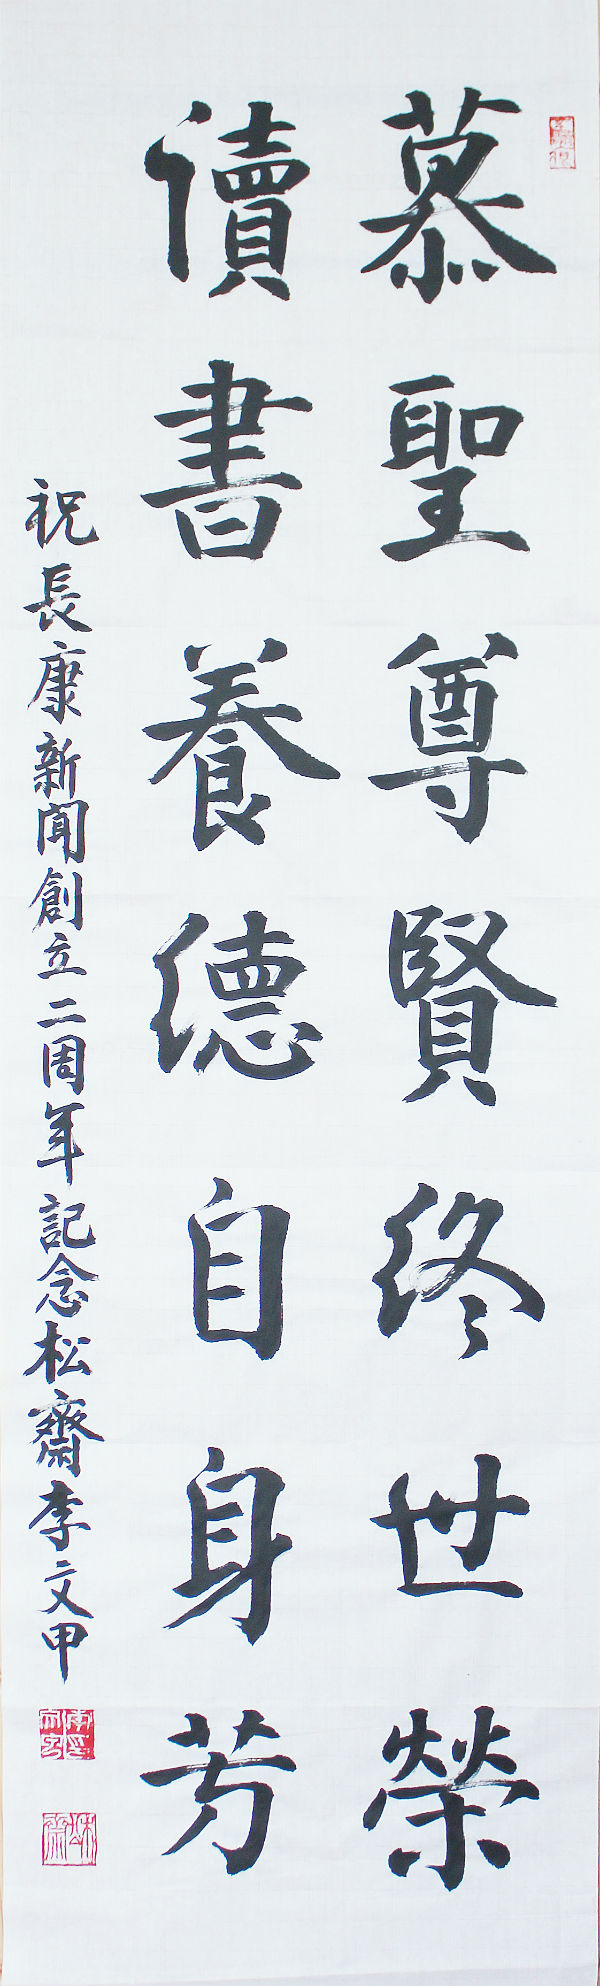 慕聖尊賢終世榮
儥書養德自身芳
祝長康新聞創立二周年記念松齋李文甲